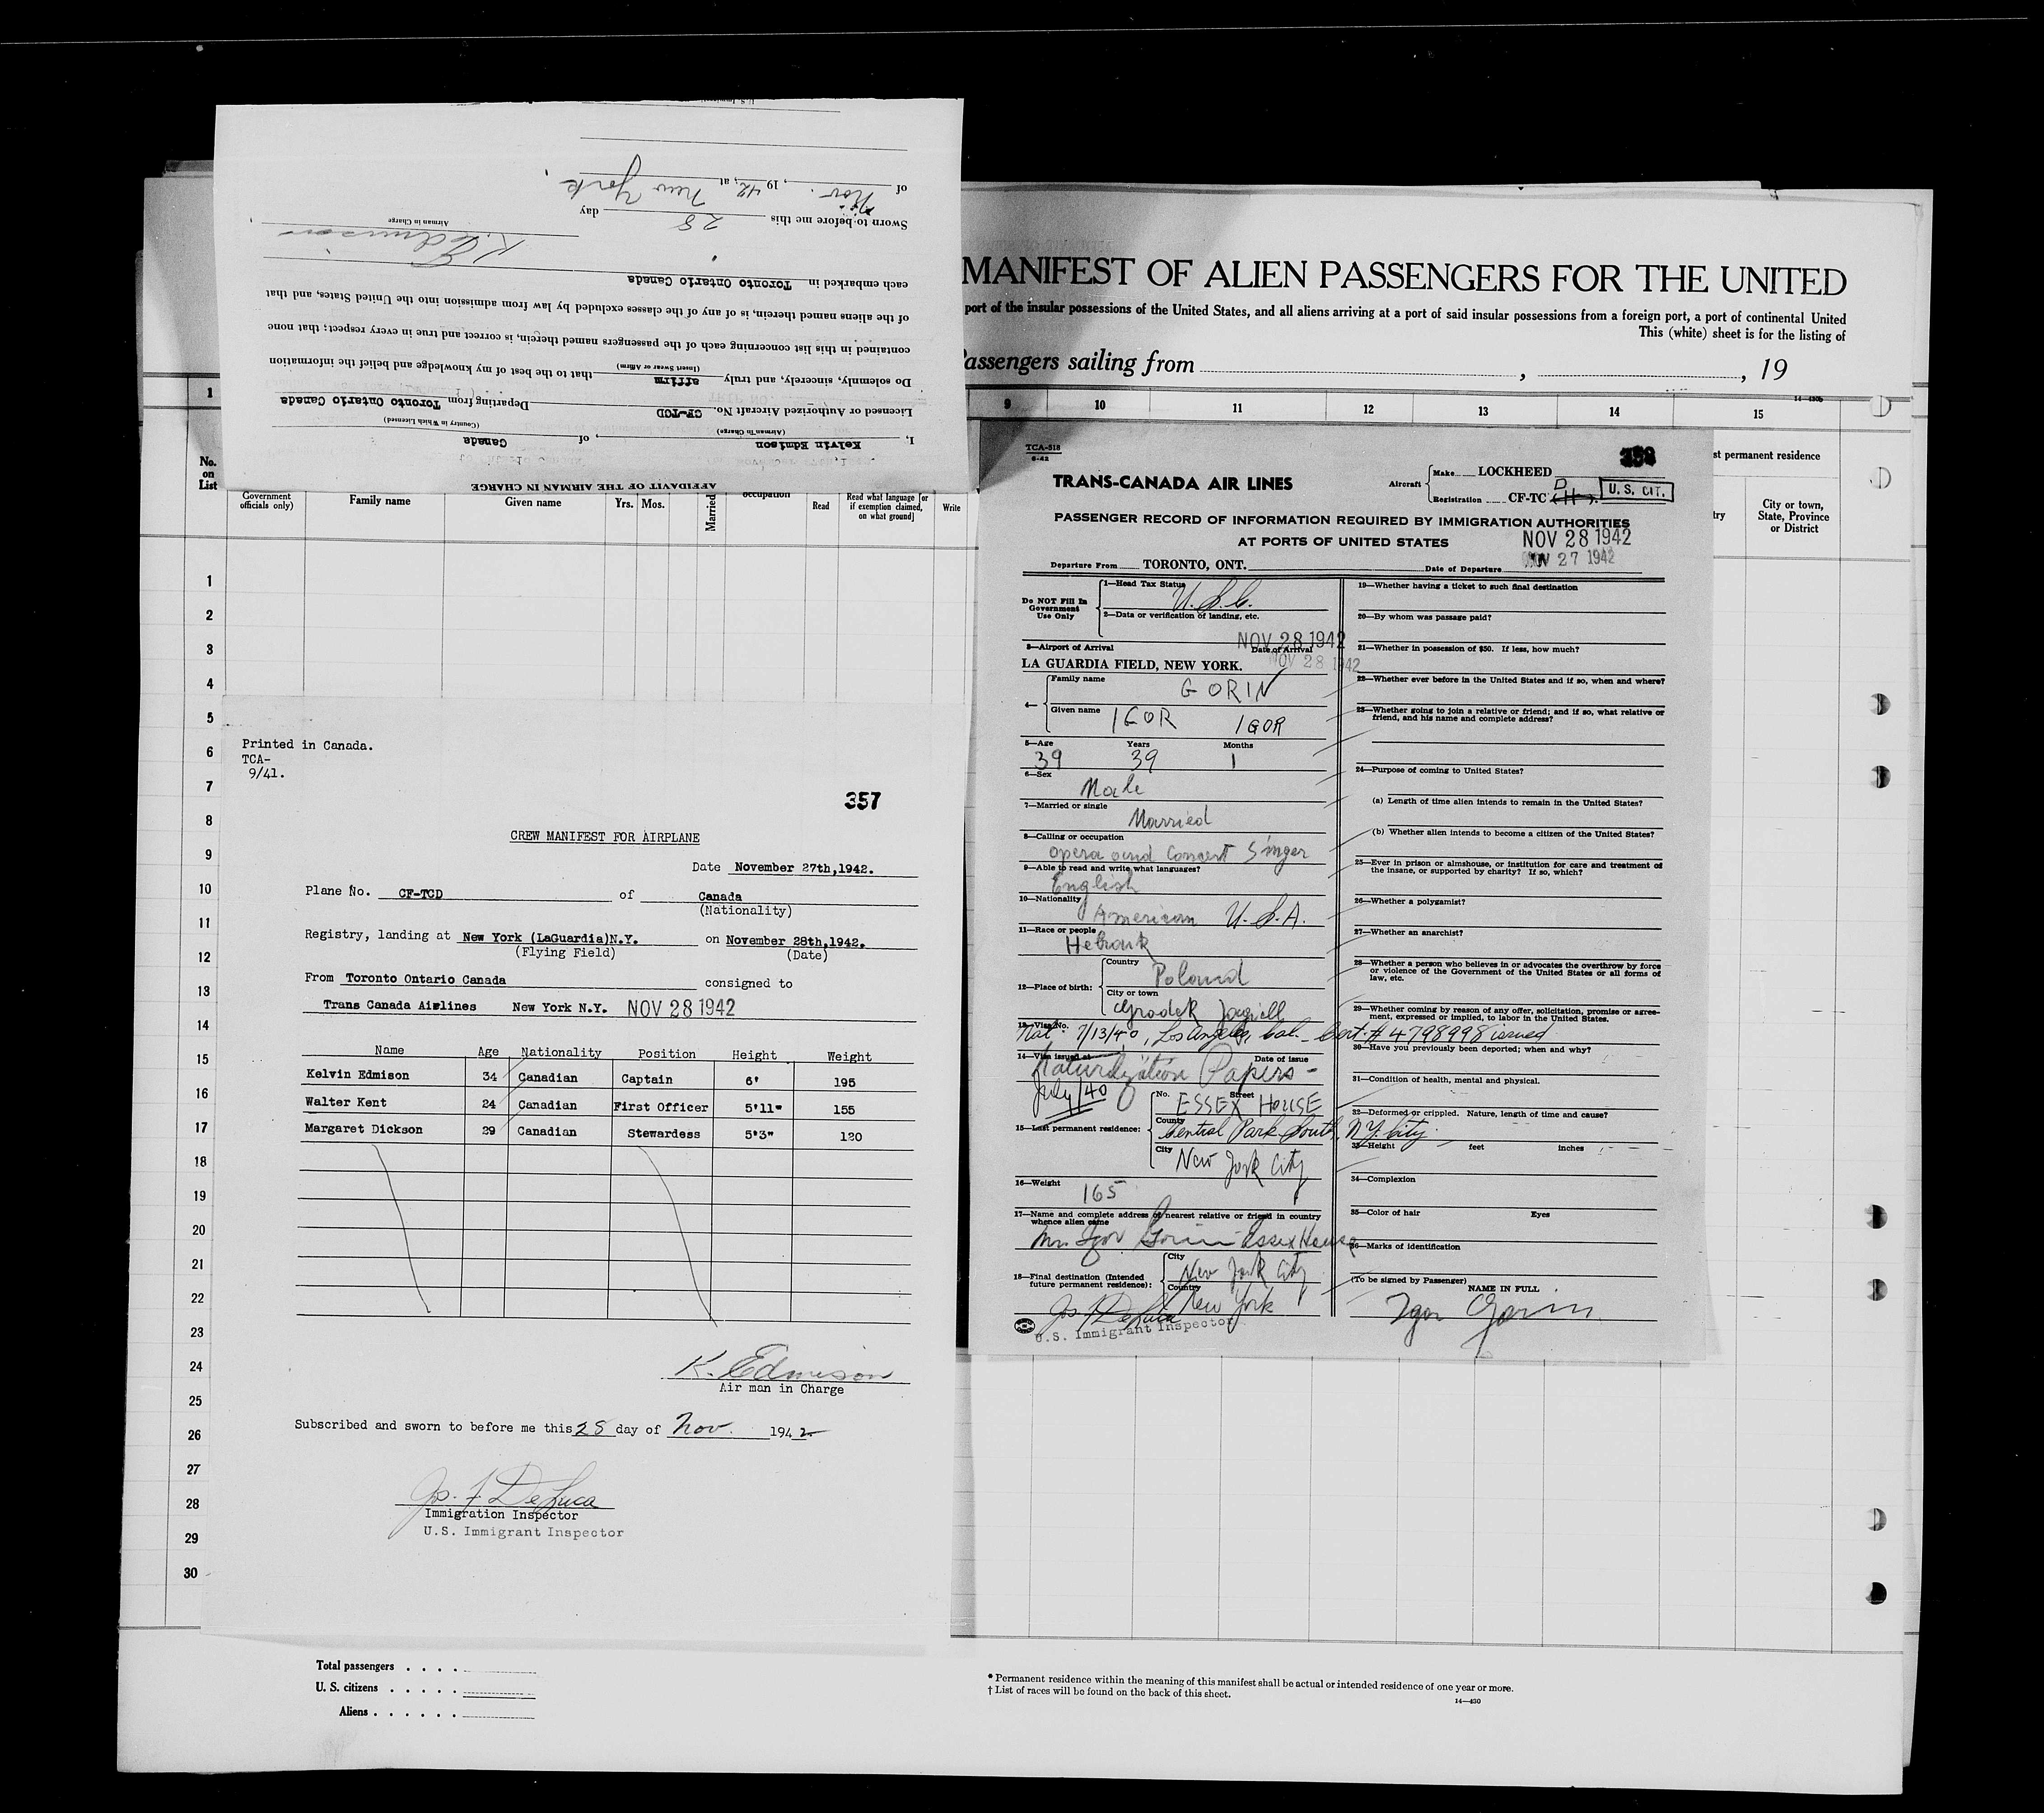 AFFIDAVIT OF THE AIRMAN IN CHARGE
I, Kelvin Edmison, of Canada
(Airman in Charge) (Country in Which Licensed)
Licensed or Authorized Aircraft No. CF-TCD Departing from Toronto Ontario Canada
Do solemnly, sincerely, and truly affirm that to the best of my knowledge and belief the information
(Insert Swear or Affirm)
contained in this list concerning each of the passengers named therein, is correct and true in every respect; that none
of the aliens named therein, is of any of the classes excluded by law from admission into the United States, and that
each embarked in Toronto Ontario Canada
K. Edmison
Airman in Charge
Sworn to before me this 28 day
of Nov., 1942, at New York
MANIFEST OF ALIEN PASSENGERS FOR THE UNITED
port of the insular possessions of the United States, and all aliens arriving at a port of said insular possessions from a foreign port, a port of continental United
This (white) sheet is for the listing of
Passengers sailing from , , 19
1 9 10 11 12 13 14 15
14-430b
No. on List
Government officials only)
Family name
Given name
Yrs. Mos.
Married
occupation
Read
Read what language [or if exemption claimed, on what ground]
Write
st permanent residence
try
City or town, State, Province or District
1
2
3
4
5
6
7
8
9
10
11
12
13
14
15
16
17
18
19
20
21
22
23
24
25
26
27
28
29
30
Printed in Canada.
TCA-
9/41.
357
CREW MANIFEST FOR AIRPLANE
Date November 27th,1942.
Plane No. CF-TCD of Canada
(Nationality)
Registry, landing at New York (LaGuardia)N.Y. on November 28th,1942.
(Flying Field) (Date)
From Toronto Ontario Canada consigned to
Trans Canada Airlines New York N.Y. NOV 28 1942
Name Age Nationality Position Height Weight
Kelvin Edmison 34 Canadian Captain 6' 195
Walter Kent 24 Canadian First Officer 5'11" 155
Margaret Dickson 29 Canadian Stewardess 5'3" 120
K. Edmison
Air man in Charge
Subscribed and sworn to before me this 28 day of Nov. 1942
Jos. F. DeLuca
Immigration Inspector
U.S. Immigrant Inspector
TCA-518
6-42
358
TRANS-CANADA AIR LINES
Aircraft Make LOCKHEED
Registration CF-TC D (H).
U. S. CIT.
PASSENGER RECORD OF INFORMATION REQUIRED BY IMMIGRATION AUTHORITIES
AT PORTS OF UNITED STATES
NOV 28 1942
Departure From TORONTO, ONT. Date of Departure NOV 27 1942
Do NOT Fill In Government Use Only
1—Head Tax Status U.S.C.
2—Data or verification of landing, etc.
NOV 28 1942
3—Airport of Arrival Date of Arrival
LA GUARDIA FIELD, NEW YORK. NOV 28 1942
4— Family name GORIN
Given name IGOR IGOR
5—Age Years Months
39 39 1
6—Sex Male
7—Married or single Married
8—Calling or occupation
Opera and Concert Singer
9—Able to read and write what languages?
English
10—Nationality
American U.S.A.
11—Race or people
12—Place of birth: Country Poland
City or town Grodek Jagiell
13—Visa No.
Nat. 7/13/40, Los Angeles, Cal. - Cert. # 4798998 issued
14—Visa issued at Date of issue
Naturalization Papers -
July/40
15—Last permanent residence: No. Street ESSEX HOUSE
County Central Park South, N.Y. City
City New York City
16—Weight 165
17—Name and complete address of nearest relative or friend in country whence alien came
Mrs. Igor Gorin - Essex House
18—Final destination (Intended future permanent residence): City New York City
Country New York
Jos. F. DeLuca
U.S. Immigrant Inspector
19—Whether having a ticket to such final destination
20—By whom was passage paid?
21—Whether in possession of $50. If less, how much?
22—Whether ever before in the United States and if so, when and where?
23—Whether going to join a relative or friend; and if so, what relative or friend, and his name and complete address?
24—Purpose of coming to United States?
(a) Length of time alien intends to remain in the United States?
(b) Whether alien intends to become a citizen of the United States?
25—Ever in prison or almshouse, or institution for care and treatment of the insane, or supported by charity? If so, which?
26—Whether a polygamist?
27—Whether an anarchist?
28—Whether a person who believes in or advocates the overthrow by force or violence of the Government of the United States or all forms of law, etc.
29—Whether coming by reason of any offer, solicitation, promise or agreement, expressed or implied, to labor in the United States.
30—Have you previously been deported; when and why?
31—Condition of health, mental and physical.
32—Deformed or crippled. Nature, length of time and cause?
33—Height feet inches
34—Complexion
35—Color of hair Eyes
36—Marks of identification
(To be signed by Passenger)
NAME IN FULL
Igor Gorin
Total passengers
U. S. citizens
Aliens
* Permanent residence within the meaning of this manifest shall be actual or intended residence of one year or more.
† List of races will be found on the back of this sheet.
14—430